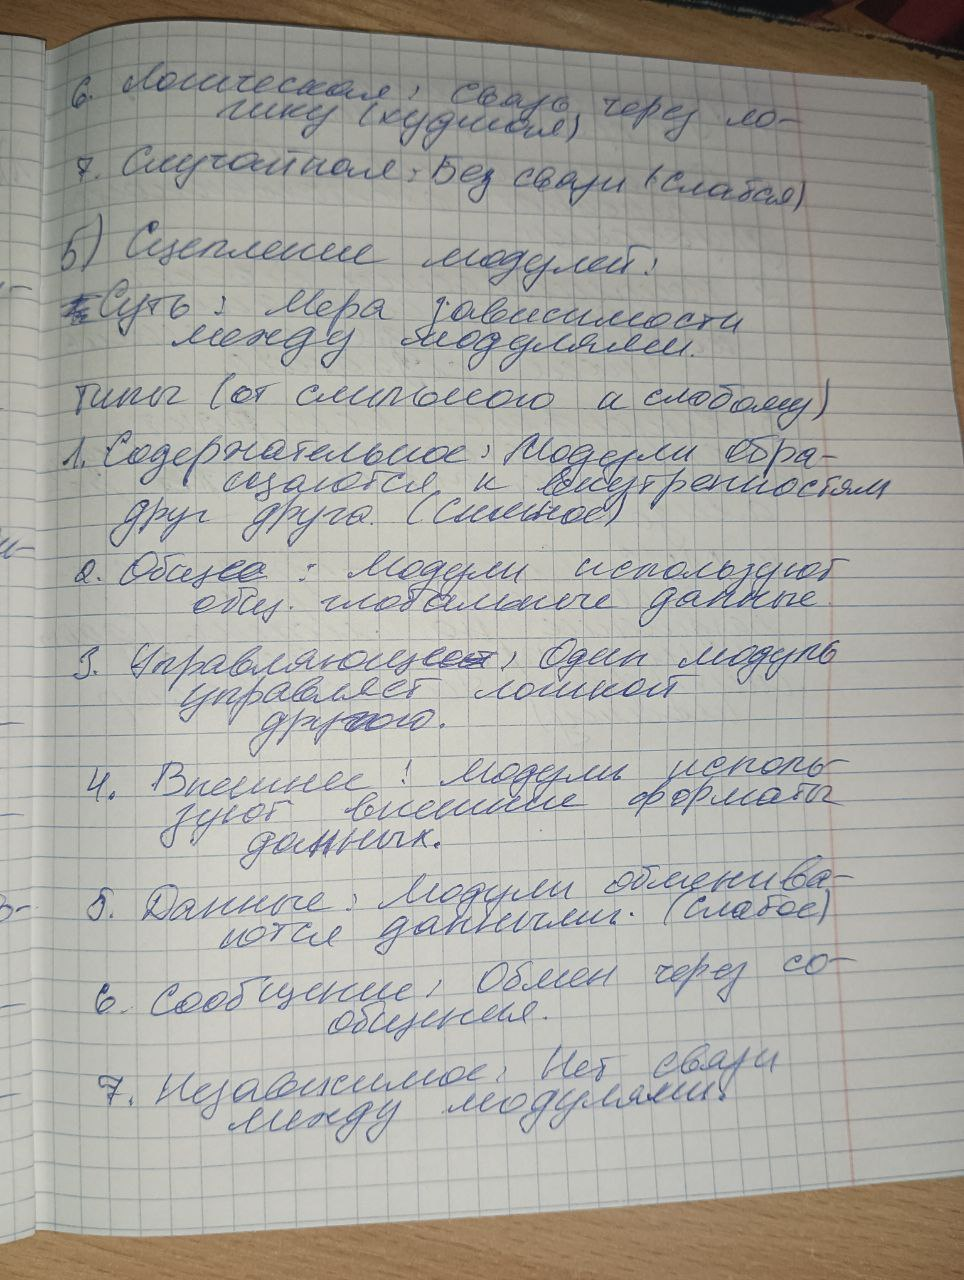 6. Логическая: связь через ло-
гику (худшая)
7. Случайная: Без связи (слабая)
Б) Сцепление модулей:
Суть: Мера зависимости
между модулями.
Типы (от сильного к слабому)
1. Содержательное: Модули обра-
щаются к внутренностям
друг друга. (Сильное)
2. Общее: Модули используют
общ. глобальные данные.
3. Управляющее: Один модуль
управляет логикой
другого.
4. Внешнее: Модули исполь-
зуют внешние форматы
данных.
5. Данные: Модули обменива-
ются данными. (Слабое)
6. Сообщение: Обмен через со-
общения.
7. Независимое: Нет связи
между модулями.